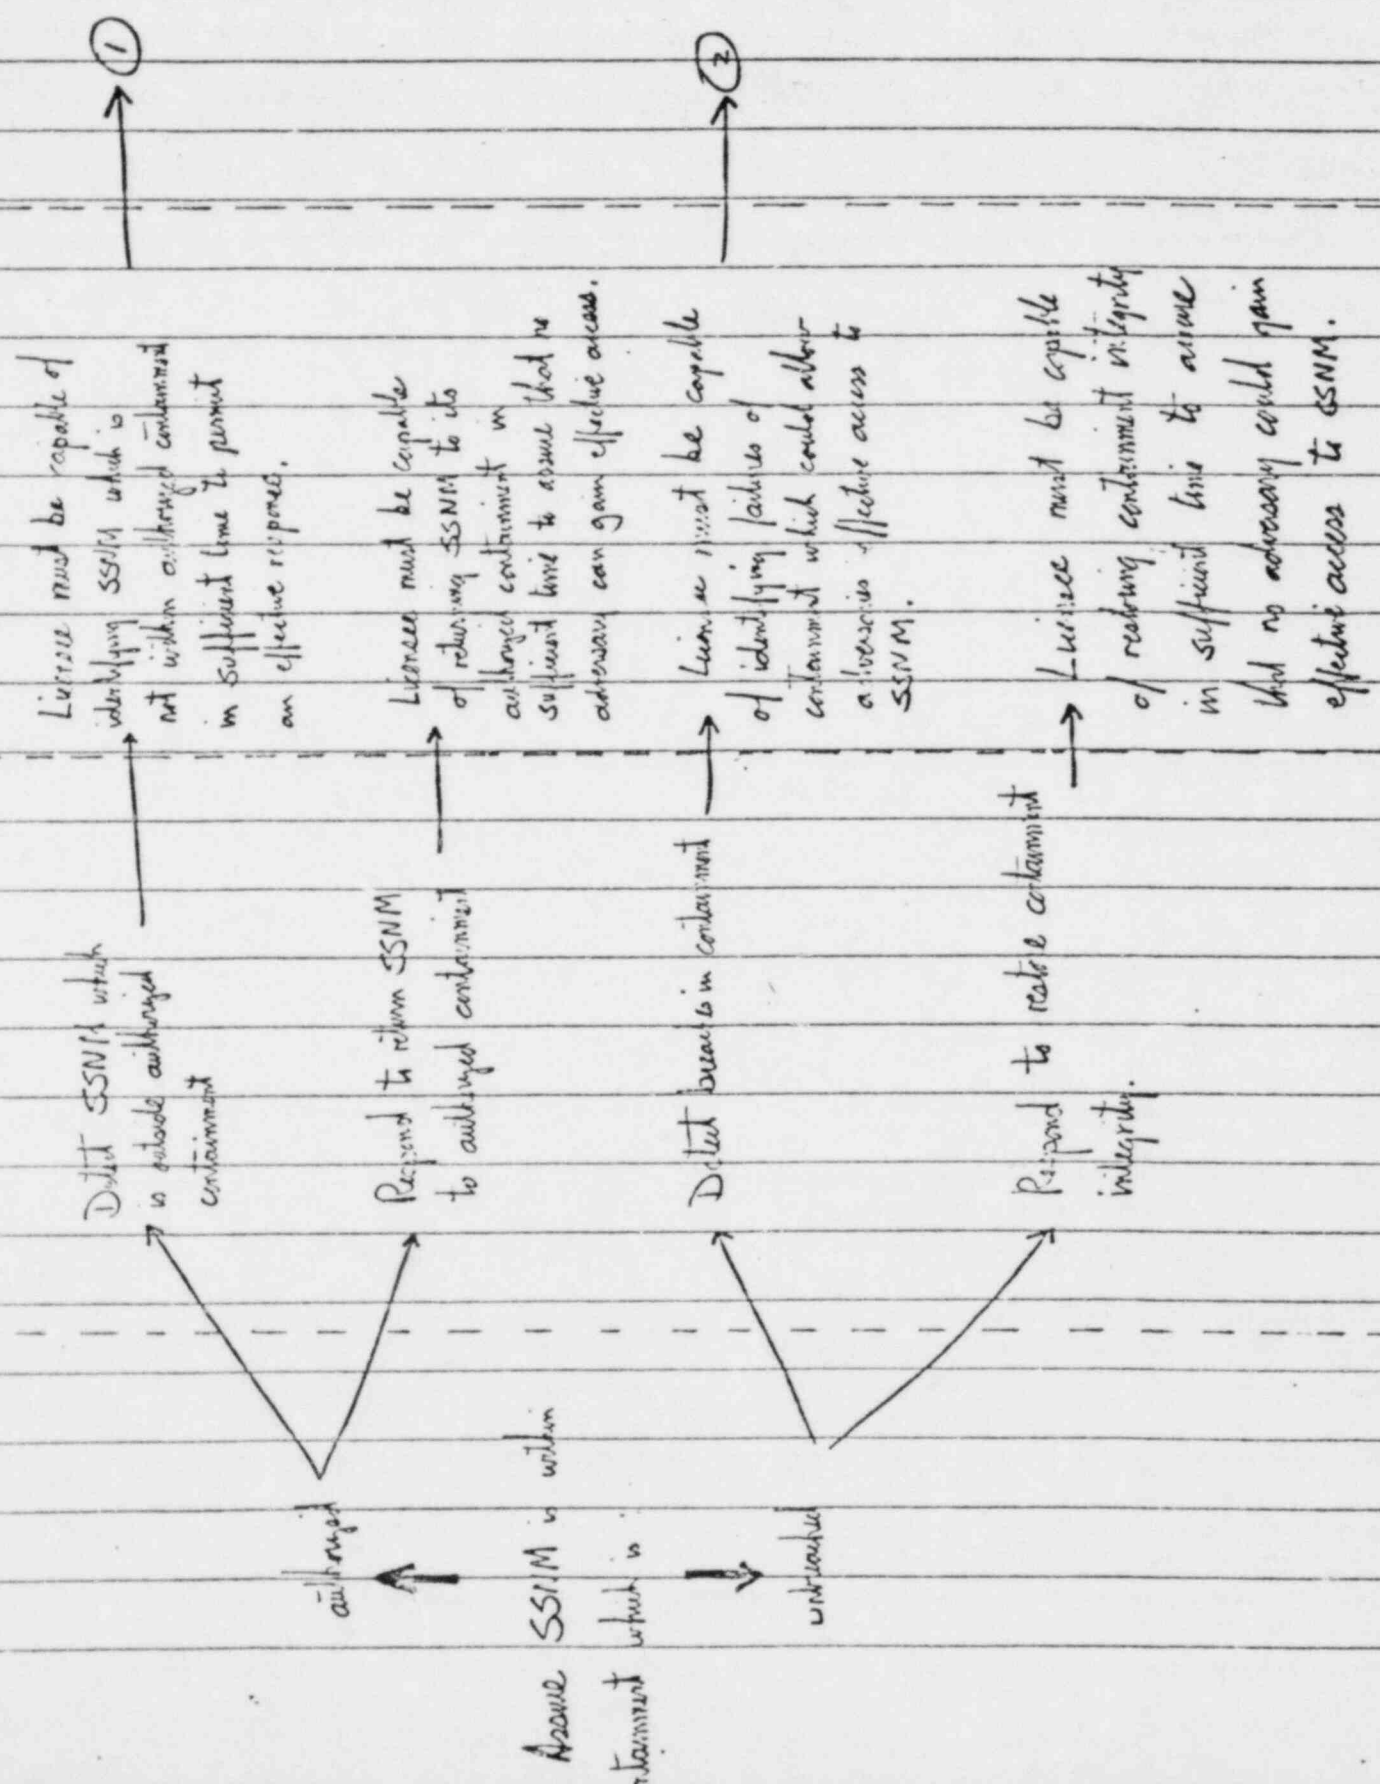 Assure SSNM is within
ntainment which is :
authorized
unbreached
Detect SSNM which
is outside authorized
containment
Respond to return SSNM
to authorized containment
Detect breaches in containment
Respond to restore containment
integrity.
Licensee must be capable of
identifying SSNM which is
not within authorized containment
in sufficient time to permit
an effective response.
Licensee must be capable
of returning SSNM to its
authorized containment in
sufficient time to assure that no
adversary can gain effective access.
Licensee must be capable
of identifying failures of
containment which could allow
adversaries effective access to
SSNM.
Licensee must be capable
of restoring containment integrity
in sufficient time to assure
that no adversary could gain
effective access to SSNM.
1
2